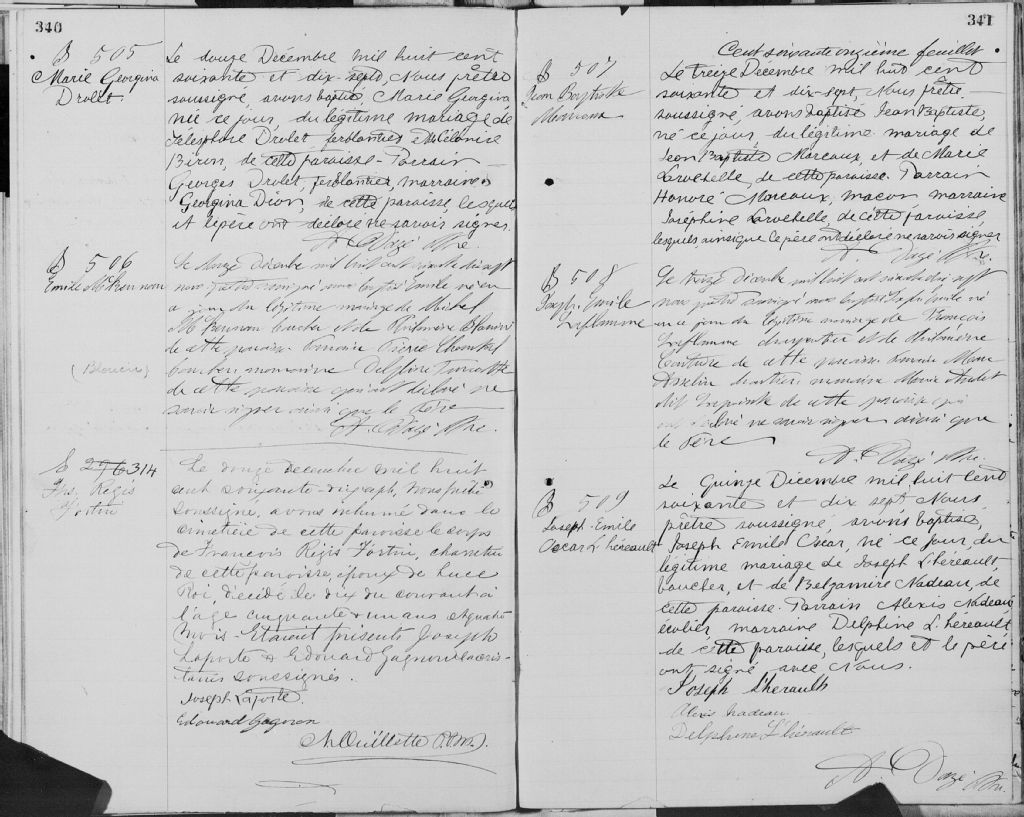 340
B 505
Marie Georgina
Drolet
Le douze Décembre mil huit cent
soixante et dix-sept, Nous prêtre
soussigné, avons baptisé, Marie Georgina
née ce jour, du légitime mariage de
Télesphore Drolet, ferblantier, et
Biron, de cette paroisse - Parrain
Georges Drolet, ferblantier, marraine
Georgina Dion, de cette paroisse lesquels
et le père ont déclaré ne savoir signer.
A. Dazé Ptre.
B 506
Emile McKennan
Le Décembre mil huit cent soixante dix sept
nous prêtre soussigné avons baptisé Emile né
jour du légitime mariage de Michel
et de Philomène
de cette paroisse. Parrain Pierre
marraine Delphine
de cette paroisse qui ont déclaré ne
savoir signer ainsi que le Père
A. Dazé Ptre.
S 276 314
Frs. Régis
Fortin
Le douze decembre mil huit
cent soixante-dix-sept, Nous prêtre
soussigné, avons inhumé dans le
cimetière de cette paroisse le corps
de François Régis Fortin, charretier
de cette paroisse, époux de Luce
Roi, décédé le dix du courant à
l'age cinquante & un ans & quatre
mois - Etaient présents Joseph
Laporte & Edouard Gagnon sacris-
tains soussignés.
Joseph Laporte.
Edouard Gagnon
Ouellette
341
Cent soixante onzième feuillet
B 507
Jean Baptiste
Le treize Décembre mil huit cent
soixante et dix-sept, Nous prêtre,
soussigné, avons baptisé Jean Baptiste,
né ce jour, du légitime mariage de
Jean Baptiste Moreaux, et de Marie
Larochelle, de cette paroisse. Parrain
Honoré Moreaux, maçon marraine
Josephine Larochelle, de cette paroisse,
lesquels ainsi que le père ont déclaré ne savoir signer
A. Dazé Ptre.
B 508
Joseph Emile
Laflamme
Le treize Décembre mil huit cent soixante dix sept
nous prêtre soussigné avons baptisé Joseph Emile né
ce jour du légitime mariage de François
Laflamme charpentier et de Philomène
Couture de cette paroisse. Parrain
Asselin marraine Marie Audet
dit Lapointe de cette paroisse qui
ont déclaré ne savoir signer ainsi que
le Père
A. Dazé Ptre.
B 509
Joseph-Emile
Oscar L'héreault
Le Quinze Décembre mil huit Cent
soixante et dix sept Nous
prêtre soussigné, avons baptisé,
Joseph Emile Oscar, né ce jour, du
légitime mariage de Joseph L'héreault,
boucher, et de Belzamire Nadeau, de
cette paroisse. Parrain Alexis Nadeau
écolier, marraine Delphine L'héreault
de cette paroisse, lesquels et le père
ont signé avec Nous.
Joseph L'herault
Alexis Nadeau
Delphine L'hérault
A. Dazé Ptre.